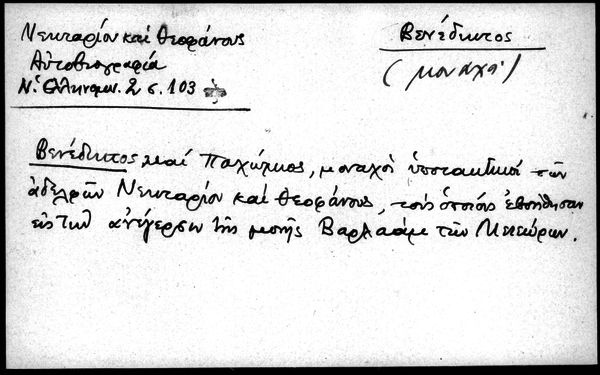 Νεκταρίου καὶ Θεοφάνους
Αὐτοβιογραφία
Ν. Ἑλληνομν. 2 σ. 103
Βενέδικτος
(μοναχοί)
Βενέδικτος, καί Παχώμιος, μοναχοὶ ὑποτακτικοί τῶν
ἀδελφῶν Νεκταρίου καὶ Θεοφάνους, τοὺς ὁποίους ἐβοήθησαν
εἰς τὴν ἀνέγερσιν τῆς μονῆς Βαρλαάμ τῶν Μετεώρων.